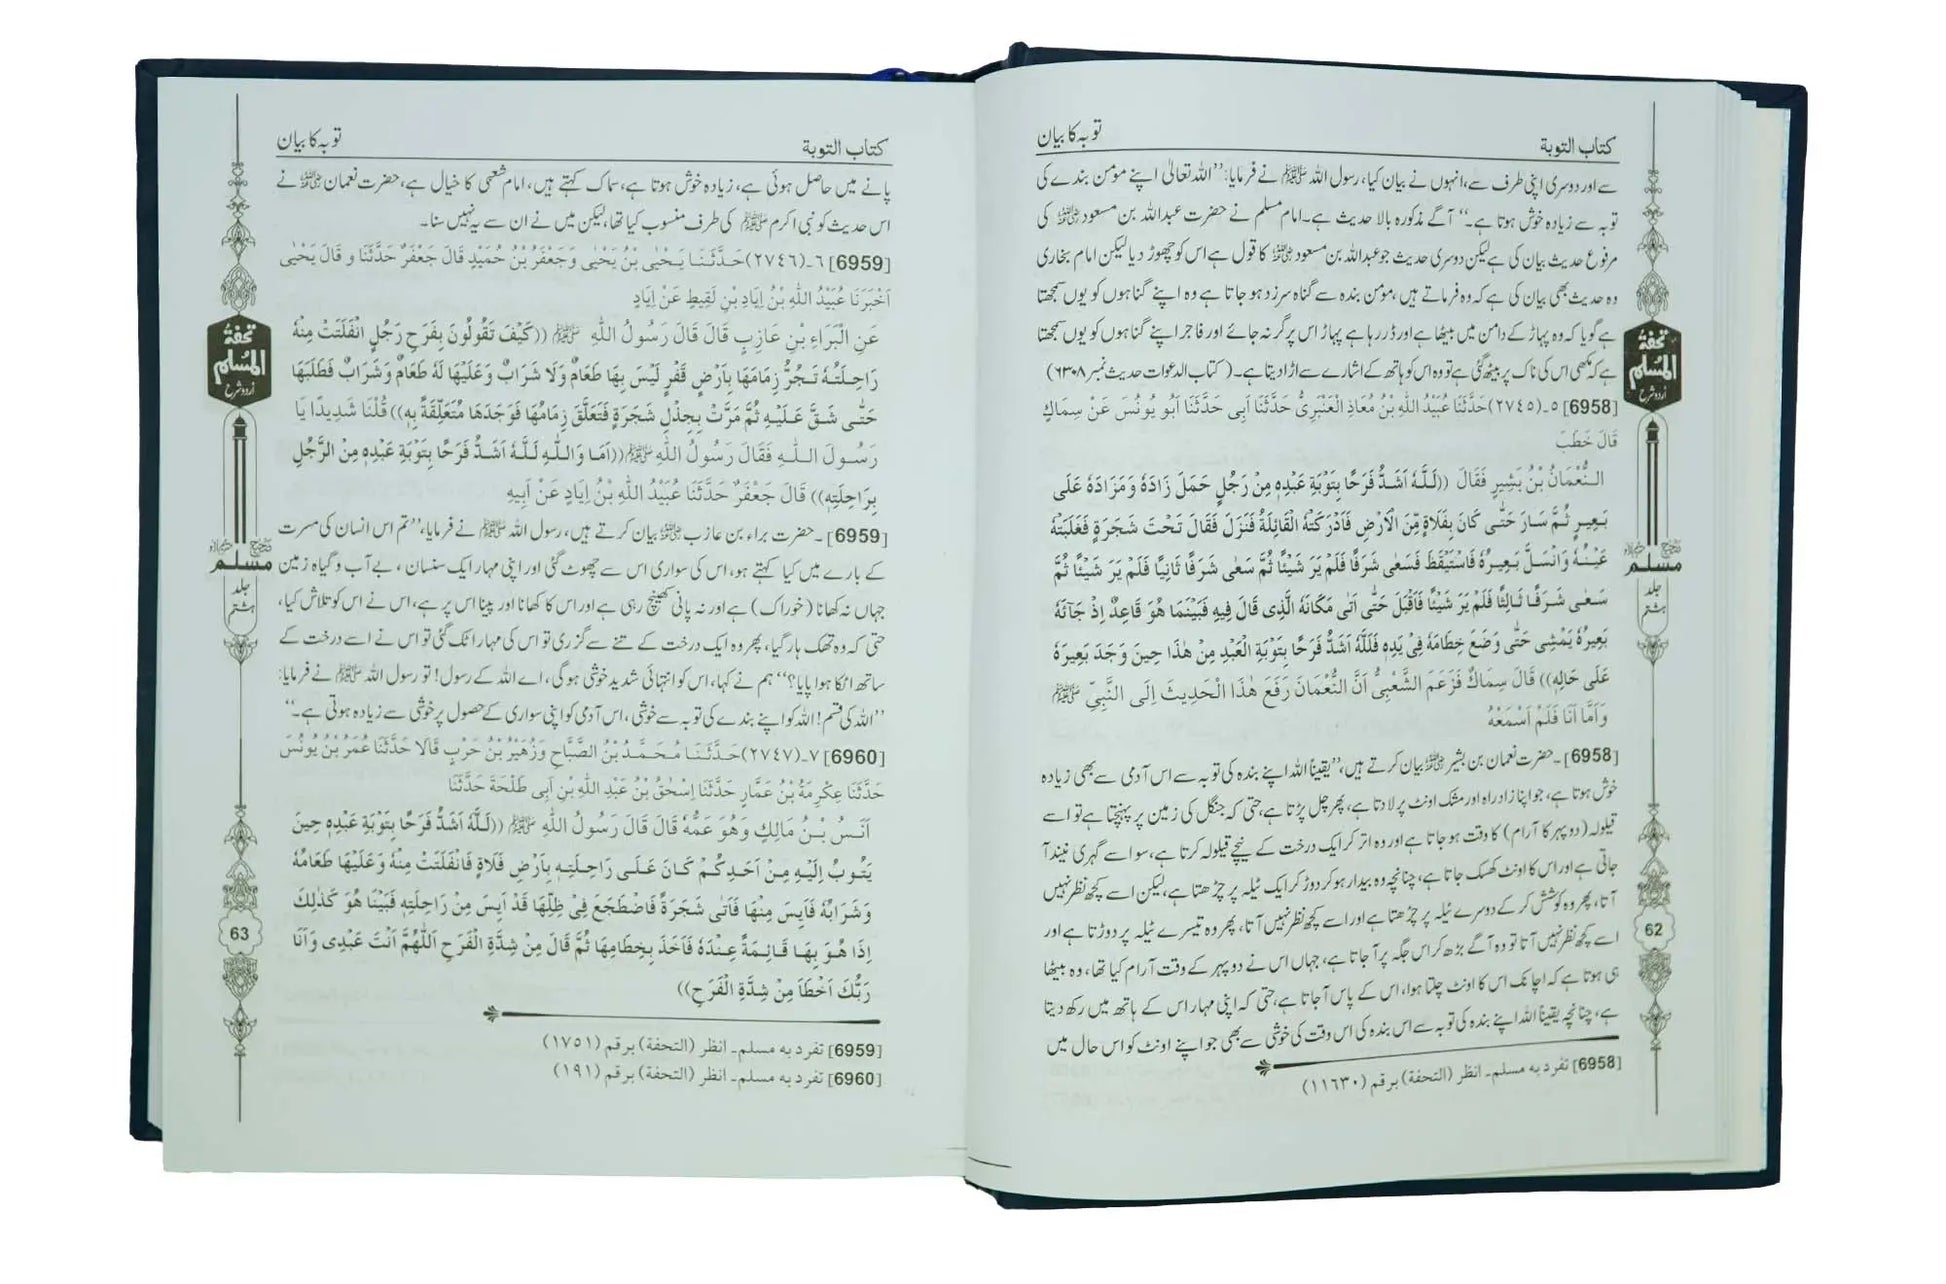 كتاب التوبة
توبہ کا بیان
سے اور دوسری اپنی طرف سے، انہوں نے بیان کیا، رسول اللہ ﷺ نے فرمایا: ’’اللہ تعالیٰ اپنے مومن بندے کی
توبہ سے زیادہ خوش ہوتا ہے۔‘‘ آگے مذکورہ بالا حدیث ہے۔ امام مسلم نے حضرت عبداللہ بن مسعود ؓ کی
مرفوع حدیث بیان کی ہے لیکن دوسری حدیث جو عبداللہ بن مسعود ؓ کا قول ہے اس کو چھوڑ دیا لیکن امام بخاری
وہ حدیث بھی بیان کی ہے کہ وہ فرماتے ہیں، مومن بندہ سے گناہ سرزد ہو جاتا ہے وہ اپنے گناہوں کو یوں سمجھتا
ہے گویا کہ وہ پہاڑ کے دامن میں بیٹھا ہے اور ڈر رہا ہے پہاڑ اس پر گر نہ جائے اور فاجر اپنے گناہوں کو یوں سمجھتا
ہے کہ مکھی اس کی ناک پر بیٹھ گئی ہے تو وہ اس کو ہاتھ کے اشارے سے اڑا دیتا ہے۔ (کتاب الدعوات حدیث نمبر ۶۳۰۸)
[6958] ٥-(٢٧٤٥) حَدَّثَنَا عُبَيْدُ اللّٰهِ بْنُ مُعَاذٍ الْعَنْبَرِيُّ حَدَّثَنَا اَبِى حَدَّثَنَا اَبُو يُونُسَ عَنْ سِمَاكٍ
قَالَ خَطَبَ
النُّعْمَانُ بْنُ بَشِيرٍ فَقَالَ ((لَلّٰهُ اَشَدُّ فَرَحًا بِتَوْبَةِ عَبْدِهٖ مِنْ رَجُلٍ حَمَلَ زَادَهُ وَمَزَادَهُ عَلٰى
بَعِيرٍ ثُمَّ سَارَ حَتّٰى كَانَ بِفَلَاةٍ مِّنَ الْاَرْضِ فَاَدْرَكَتْهُ الْقَائِلَةُ فَنَزَلَ فَقَالَ تَحْتَ شَجَرَةٍ فَغَلَبَتْهُ
عَيْنُهُ وَانْسَلَّ بَعِيرُهُ فَاسْتَيْقَظَ فَسَعٰى شَرَفًا فَلَمْ يَرَ شَيْئًا ثُمَّ سَعٰى شَرَفًا ثَانِيًا فَلَمْ يَرَ شَيْئًا ثُمَّ
سَعٰى شَرَفًا ثَالِثًا فَلَمْ يَرَ شَيْئًا فَاَقْبَلَ حَتّٰى اَتٰى مَكَانَهُ الَّذِى قَالَ فِيهِ فَبَيْنَمَا هُوَ قَاعِدٌ اِذْ جَآئَهُ
بَعِيرُهُ يَمْشِى حَتّٰى وَضَعَ خِطَامَهُ فِىْ يَدِهِ فَلَلّٰهُ اَشَدُّ فَرَحًا بِتَوْبَةِ الْعَبْدِ مِنْ هٰذَا حِينَ وَجَدَ بَعِيرَهُ
عَلٰى حَالِهٖ)) قَالَ سِمَاكٌ فَزَعَمَ الشَّعْبِىُّ اَنَّ النُّعْمَانَ رَفَعَ هٰذَا الْحَدِيثَ اِلَى النَّبِىِّ ﷺ
وَاَمَّا اَنَا فَلَمْ اَسْمَعْهُ
[6958]۔ حضرت نعمان بن بشیر ؓ بیان کرتے ہیں، ’’یقیناً اللہ اپنے بندہ کی توبہ سے اس آدمی سے بھی زیادہ
خوش ہوتا ہے، جو اپنا زادراہ اور مشک اونٹ پر لادتا ہے، پھر چل پڑتا ہے، حتی کہ جنگل کی زمین پر پہنچتا ہے تو اسے
قیلولہ (دوپہر کا آرام) کا وقت ہو جاتا ہے اور وہ اتر کر ایک درخت کے نیچے قیلولہ کرتا ہے، سو اسے گہری نیند آ
جاتی ہے اور اس کا اونٹ کھسک جاتا ہے، چنانچہ وہ بیدار ہو کر دوڑ کر ایک ٹیلہ پر چڑھتا ہے، لیکن اسے کچھ نظر نہیں
آتا، پھر وہ کوشش کر کے دوسرے ٹیلہ پر چڑھتا ہے اور اسے کچھ نظر نہیں آتا، پھر وہ تیسرے ٹیلہ پر دوڑتا ہے اور
اسے کچھ نظر نہیں آتا تو وہ آگے بڑھ کر اس جگہ پر آ جاتا ہے، جہاں اس نے دوپہر کے وقت آرام کیا تھا، وہ بیٹھا
ہی ہوتا ہے کہ اچانک اس کا اونٹ چلتا ہوا، اس کے پاس آ جاتا ہے، حتی کہ اپنی مہار اس کے ہاتھ میں رکھ دیتا
ہے، چنانچہ یقیناً اللہ اپنے بندہ کی توبہ سے اس بندہ کی اس وقت کی خوشی سے بھی جو اپنے اونٹ کو اس حال میں
[6958] تفرد به مسلم۔ انظر (التحفة) برقم (١١٦٣٠)
تحفۃ
المُسلم
اردو شرح
صحیح
مسلم
جلد
ہشتم
62
كتاب التوبة
توبہ کا بیان
پانے میں حاصل ہوئی ہے، زیادہ خوش ہوتا ہے، سماک کہتے ہیں، امام شعبی کا خیال ہے، حضرت نعمان ؓ نے
اس حدیث کو نبی اکرم ﷺ کی طرف منسوب کیا تھا، لیکن میں نے ان سے یہ نہیں سنا۔
[6959] ٦-(٢٧٤٦) حَدَّثَنَا يَحْيٰى بْنُ يَحْيٰى وَجَعْفَرُ بْنُ حُمَيْدٍ قَالَ جَعْفَرٌ حَدَّثَنَا و قَالَ يَحْيٰى
اَخْبَرَنَا عُبَيْدُ اللّٰهِ بْنُ اِيَادِ بْنِ لَقِيطٍ عَنْ اِيَادٍ
عَنِ الْبَرَاءِ بْنِ عَازِبٍ قَالَ قَالَ رَسُولُ اللّٰهِ ﷺ ((كَيْفَ تَقُولُونَ بِفَرَحِ رَجُلٍ انْفَلَتَتْ مِنْهُ
رَاحِلَتُهُ تَجُرُّ زِمَامَهَا بِاَرْضٍ قَفْرٍ لَيْسَ بِهَا طَعَامٌ وَلَا شَرَابٌ وَعَلَيْهَا لَهُ طَعَامٌ وَشَرَابٌ فَطَلَبَهَا
حَتّٰى شَقَّ عَلَيْهِ ثُمَّ مَرَّتْ بِجِذْلِ شَجَرَةٍ فَتَعَلَّقَ زِمَامُهَا فَوَجَدَهَا مُتَعَلِّقَةً بِهٖ)) قُلْنَا شَدِيدًا يَا
رَسُولَ اللّٰهِ فَقَالَ رَسُولُ اللّٰهِ ﷺ ((اَمَا وَاللّٰهِ لَلّٰهُ اَشَدُّ فَرَحًا بِتَوْبَةِ عَبْدِهٖ مِنَ الرَّجُلِ
بِرَاحِلَتِهٖ)) قَالَ جَعْفَرٌ حَدَّثَنَا عُبَيْدُ اللّٰهِ بْنُ اِيَادٍ عَنْ اَبِيهِ
[6959]۔ حضرت براء بن عازب ؓ بیان کرتے ہیں، رسول اللہ ﷺ نے فرمایا، ’’تم اس انسان کی مسرت
کے بارے میں کیا کہتے ہو، اس کی سواری اس سے چھوٹ گئی اور اپنی مہار ایک سنسان، بے آب و گیاہ زمین
جہاں نہ کھانا (خوراک) ہے اور نہ پانی کھینچ رہی ہے اور اس کا کھانا اور پینا اس پر ہے، اس نے اس کو تلاش کیا،
حتی کہ وہ تھک ہار گیا، پھر وہ ایک درخت کے تنے سے گزری تو اس کی مہار اٹک گئی تو اس نے اسے درخت کے
ساتھ اٹکا ہوا پایا؟‘‘ ہم نے کہا، اس کو انتہائی شدید خوشی ہوگی، اے اللہ کے رسول! تو رسول اللہ ﷺ نے فرمایا:
’’اللہ کی قسم! اللہ کو اپنے بندے کی توبہ سے خوشی، اس آدمی کو اپنی سواری کے حصول پر خوشی سے زیادہ ہوتی ہے۔‘‘
[6960] ٧-(٢٧٤٧) حَدَّثَنَا مُحَمَّدُ بْنُ الصَّبَّاحِ وَزُهَيْرُ بْنُ حَرْبٍ قَالَا حَدَّثَنَا عُمَرُ بْنُ يُونُسَ
حَدَّثَنَا عِكْرِمَةُ بْنُ عَمَّارٍ حَدَّثَنَا اِسْحٰقُ بْنُ عَبْدِ اللّٰهِ بْنِ اَبِى طَلْحَةَ حَدَّثَنَا
اَنَسُ بْنُ مَالِكٍ وَهُوَ عَمُّهُ قَالَ قَالَ رَسُولُ اللّٰهِ ﷺ ((لَلّٰهُ اَشَدُّ فَرَحًا بِتَوْبَةِ عَبْدِهٖ حِينَ
يَتُوبُ اِلَيْهِ مِنْ اَحَدِكُمْ كَانَ عَلٰى رَاحِلَتِهٖ بِاَرْضِ فَلَاةٍ فَانْفَلَتَتْ مِنْهُ وَعَلَيْهَا طَعَامُهُ
وَشَرَابُهُ فَاَيِسَ مِنْهَا فَاَتٰى شَجَرَةً فَاضْطَجَعَ فِىْ ظِلِّهَا قَدْ اَيِسَ مِنْ رَاحِلَتِهٖ فَبَيْنَا هُوَ كَذٰلِكَ
اِذَا هُوَ بِهَا قَائِمَةً عِنْدَهُ فَاَخَذَ بِخِطَامِهَا ثُمَّ قَالَ مِنْ شِدَّةِ الْفَرَحِ اَللّٰهُمَّ اَنْتَ عَبْدِى وَاَنَا
رَبُّكَ اَخْطَاَ مِنْ شِدَّةِ الْفَرَحِ))
[6959] تفرد به مسلم۔ انظر (التحفة) برقم (١٧٥١)
[6960] تفرد به مسلم۔ انظر (التحفة) برقم (١٩١)
تحفۃ
المُسلم
اردو شرح
صحیح
مسلم
جلد
ہشتم
63